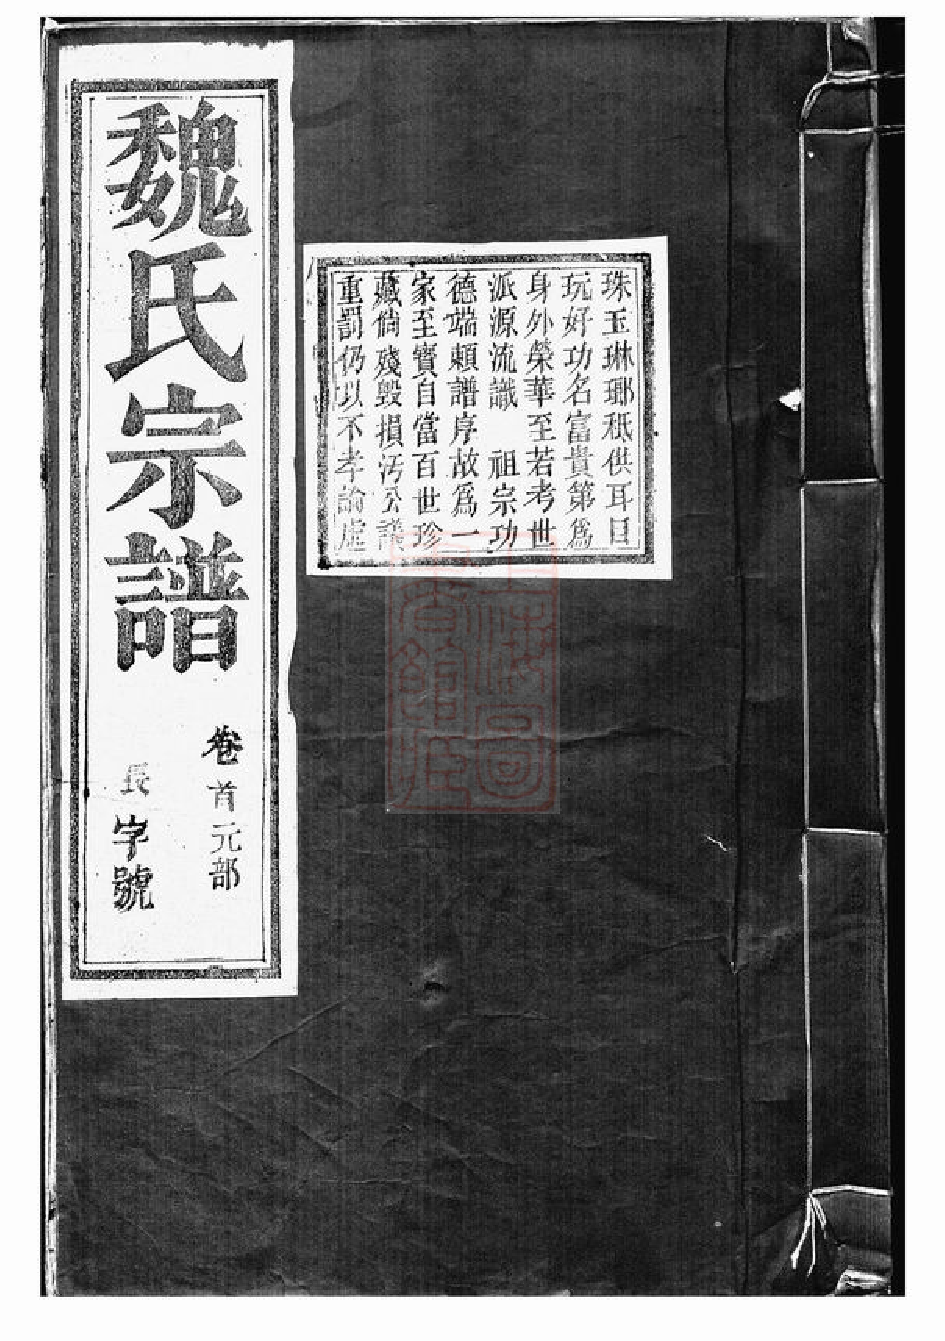 魏氏宗譜
卷首元部
長字號
珠玉琳瑯秖供耳目
玩好功名富貴第為
身外榮華至若考世
派源流識　祖宗功
德端頼譜序故為一
家至寳自當百世珍
藏倘殘毀損汚公議
重罰仍以不孝論虗
上海圖書館藏